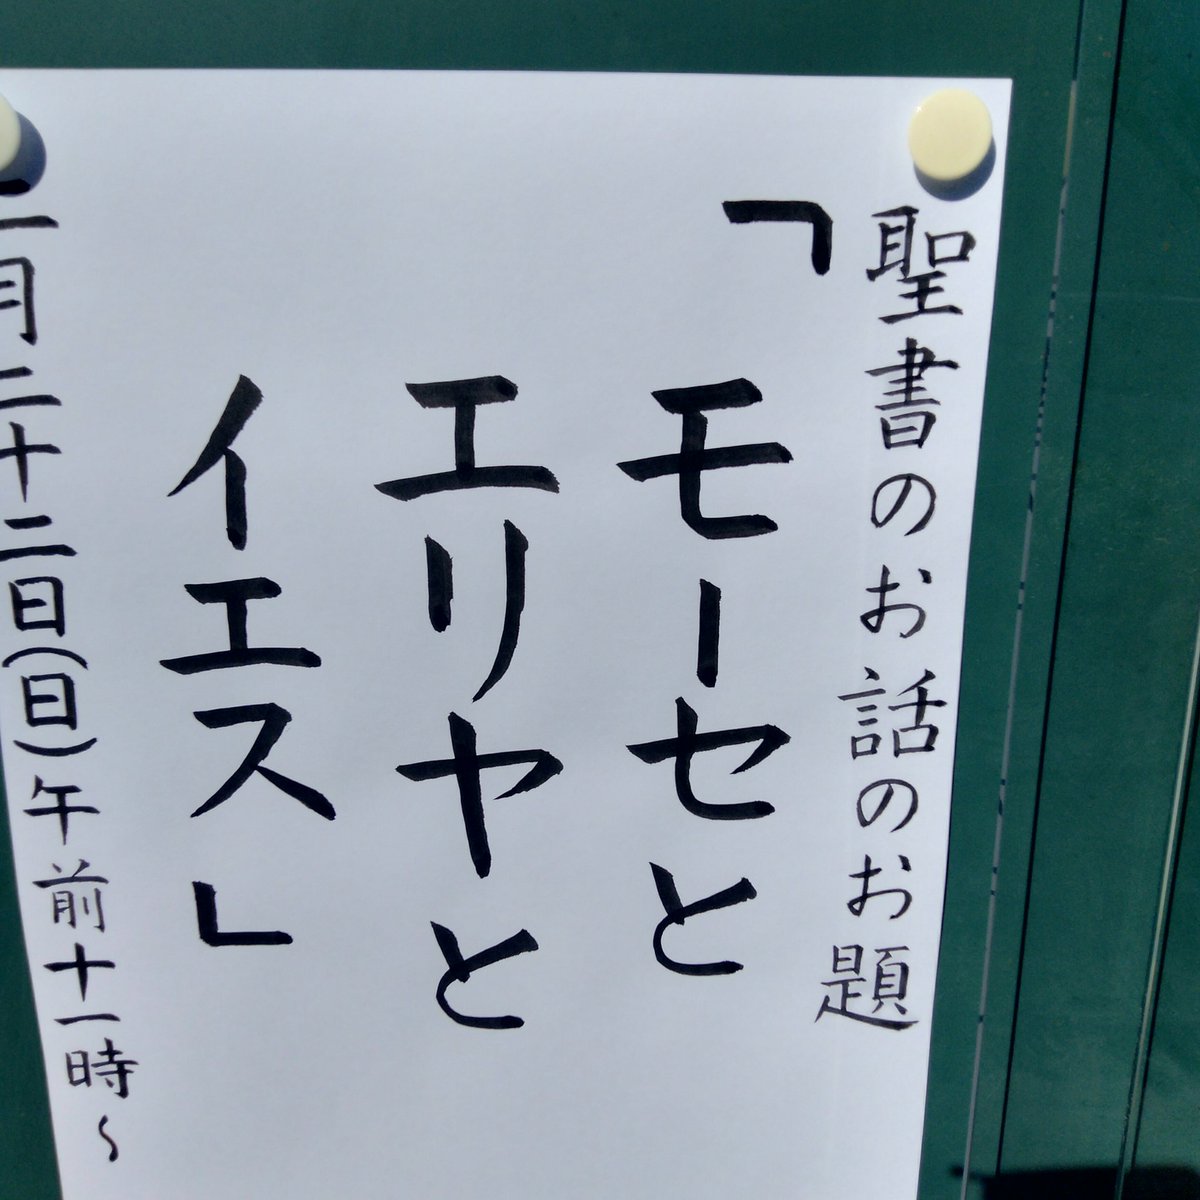 聖書のお話のお題
「モーセと
エリヤと
イエス」
二月二十二日(日)午前十一時～